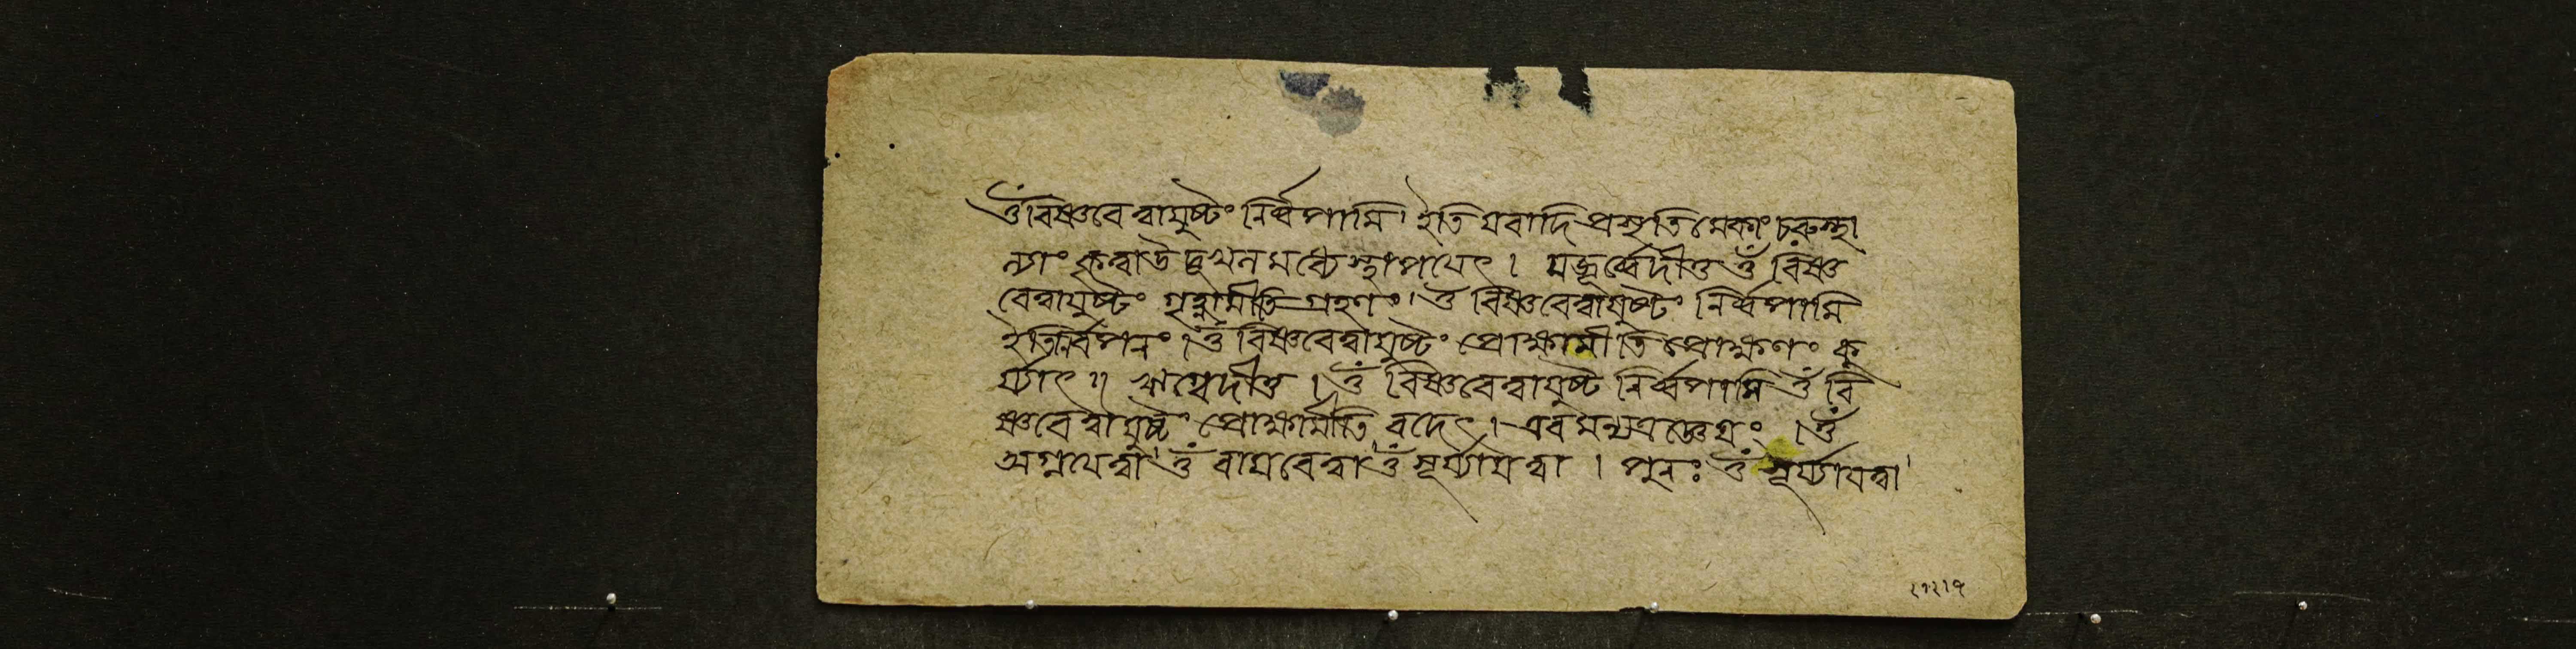 ওঁ বিষ্ণবে ত্বা যুষ্টং নির্ব্বপামি। ইতি যবাদি প্রসৃতিমেকাং চরুস্থা
ল্যাং কৃত্বা উদূখলমধ্যে স্থাপয়েৎ। যজুর্ব্বেদীতু ওঁ বিষ্ণ
বে ত্বা যুষ্টং গৃহ্নামীতি গ্রহণং। ওঁ বিষ্ণবে ত্বা যুষ্টং নির্ব্বপামি
ইতি নির্বপনং। ওঁ বিষ্ণবে ত্বা যুষ্টং প্রোক্ষামীতি প্রোক্ষণং কু
র্য্যাৎ॥ ঋগ্বেদীতু। ওঁ বিষ্ণবে ত্বা যুষ্টং নির্ব্বপামি ওঁ বি
ষ্ণবে ত্বা যুষ্টং প্রোক্ষামীতি বদেৎ। এবমন্যত্র জ্ঞেয়ং। ওঁ
অগ্নয়ে ত্বা। ওঁ বায়বে ত্বা। ওঁ সূর্য্যায় ত্বা। পুনঃ ওঁ সূর্য্যায় ত্বা।